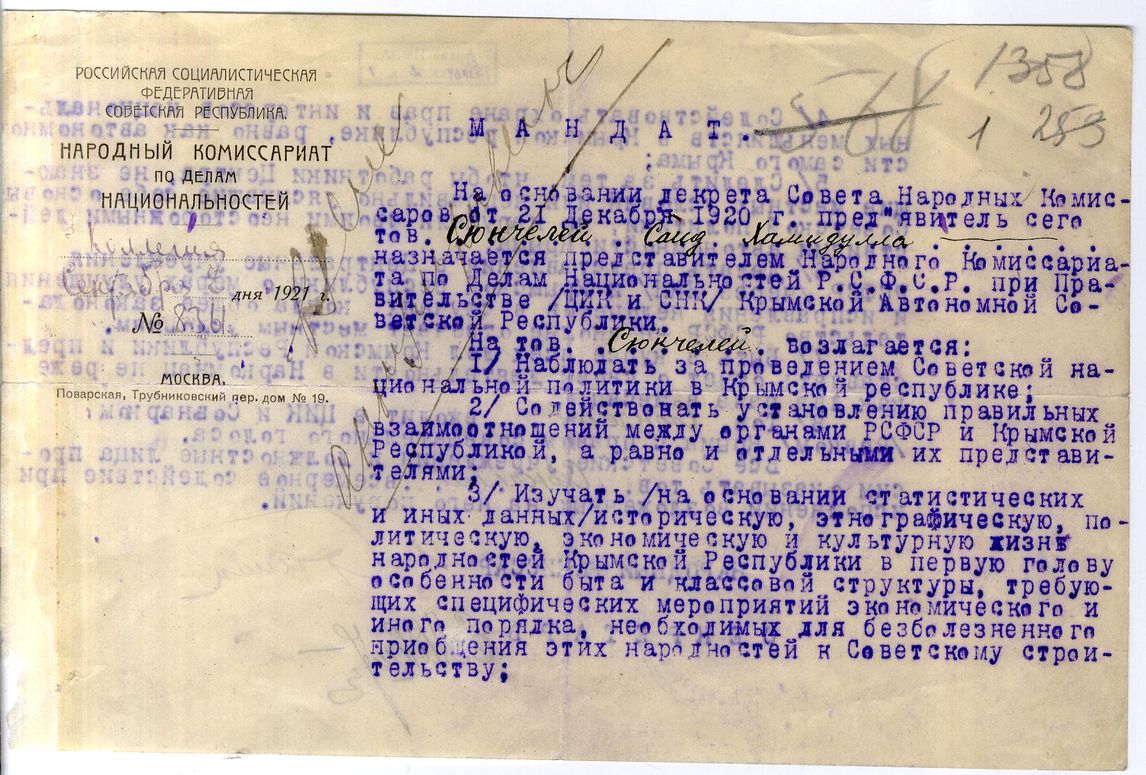 РОССИЙСКАЯ СОЦИАЛИСТИЧЕСКАЯ
ФЕДЕРАТИВНАЯ
СОВЕТСКАЯ РЕСПУБЛИКА.
НАРОДНЫЙ КОМИССАРИАТ
ПО ДЕЛАМ
НАЦИОНАЛЬНОСТЕЙ
Коллегия
Сентября дня 1921 г.
№
МОСКВА,
Поварская, Трубниковский пер. дом № 19.
1358
1 259
58
МАНДАТ.
На основании декрета Совета Народных Комис-
саров от 21 Декабря 1920 г. пред"явитель сего
тов. Сюнчелей . Саид . Хамидулла . . . . .
назначается представителем Народного Комиссариа-
та по Делам Национальностей Р.С.Ф.С.Р. при Пра-
вительстве /ЦИК и СНК/ Крымской Автономной Со-
ветской Республики.
На тов. . Сюнчелей. . возлагается:
1/ Наблюдать за проведением Советской на-
циональной политики в Крымской республике;
2/ Содействовать установлению правильных
взаимоотношений между органами РСФСР и Крымской
Республикой, а равно и отдельными их представи-
телями;
3/ Изучать /на основании статистических
и иных данных/историческую, этнографическую, по-
литическую, экономическую и культурную жизнь
народностей Крымской Республики в первую голову
особенности быта и классовой структуры, требую-
щих специфических мероприятий экономического и
иного порядка, необходимых для безболезненного
приобщения этих народностей к Советскому строи-
тельству;